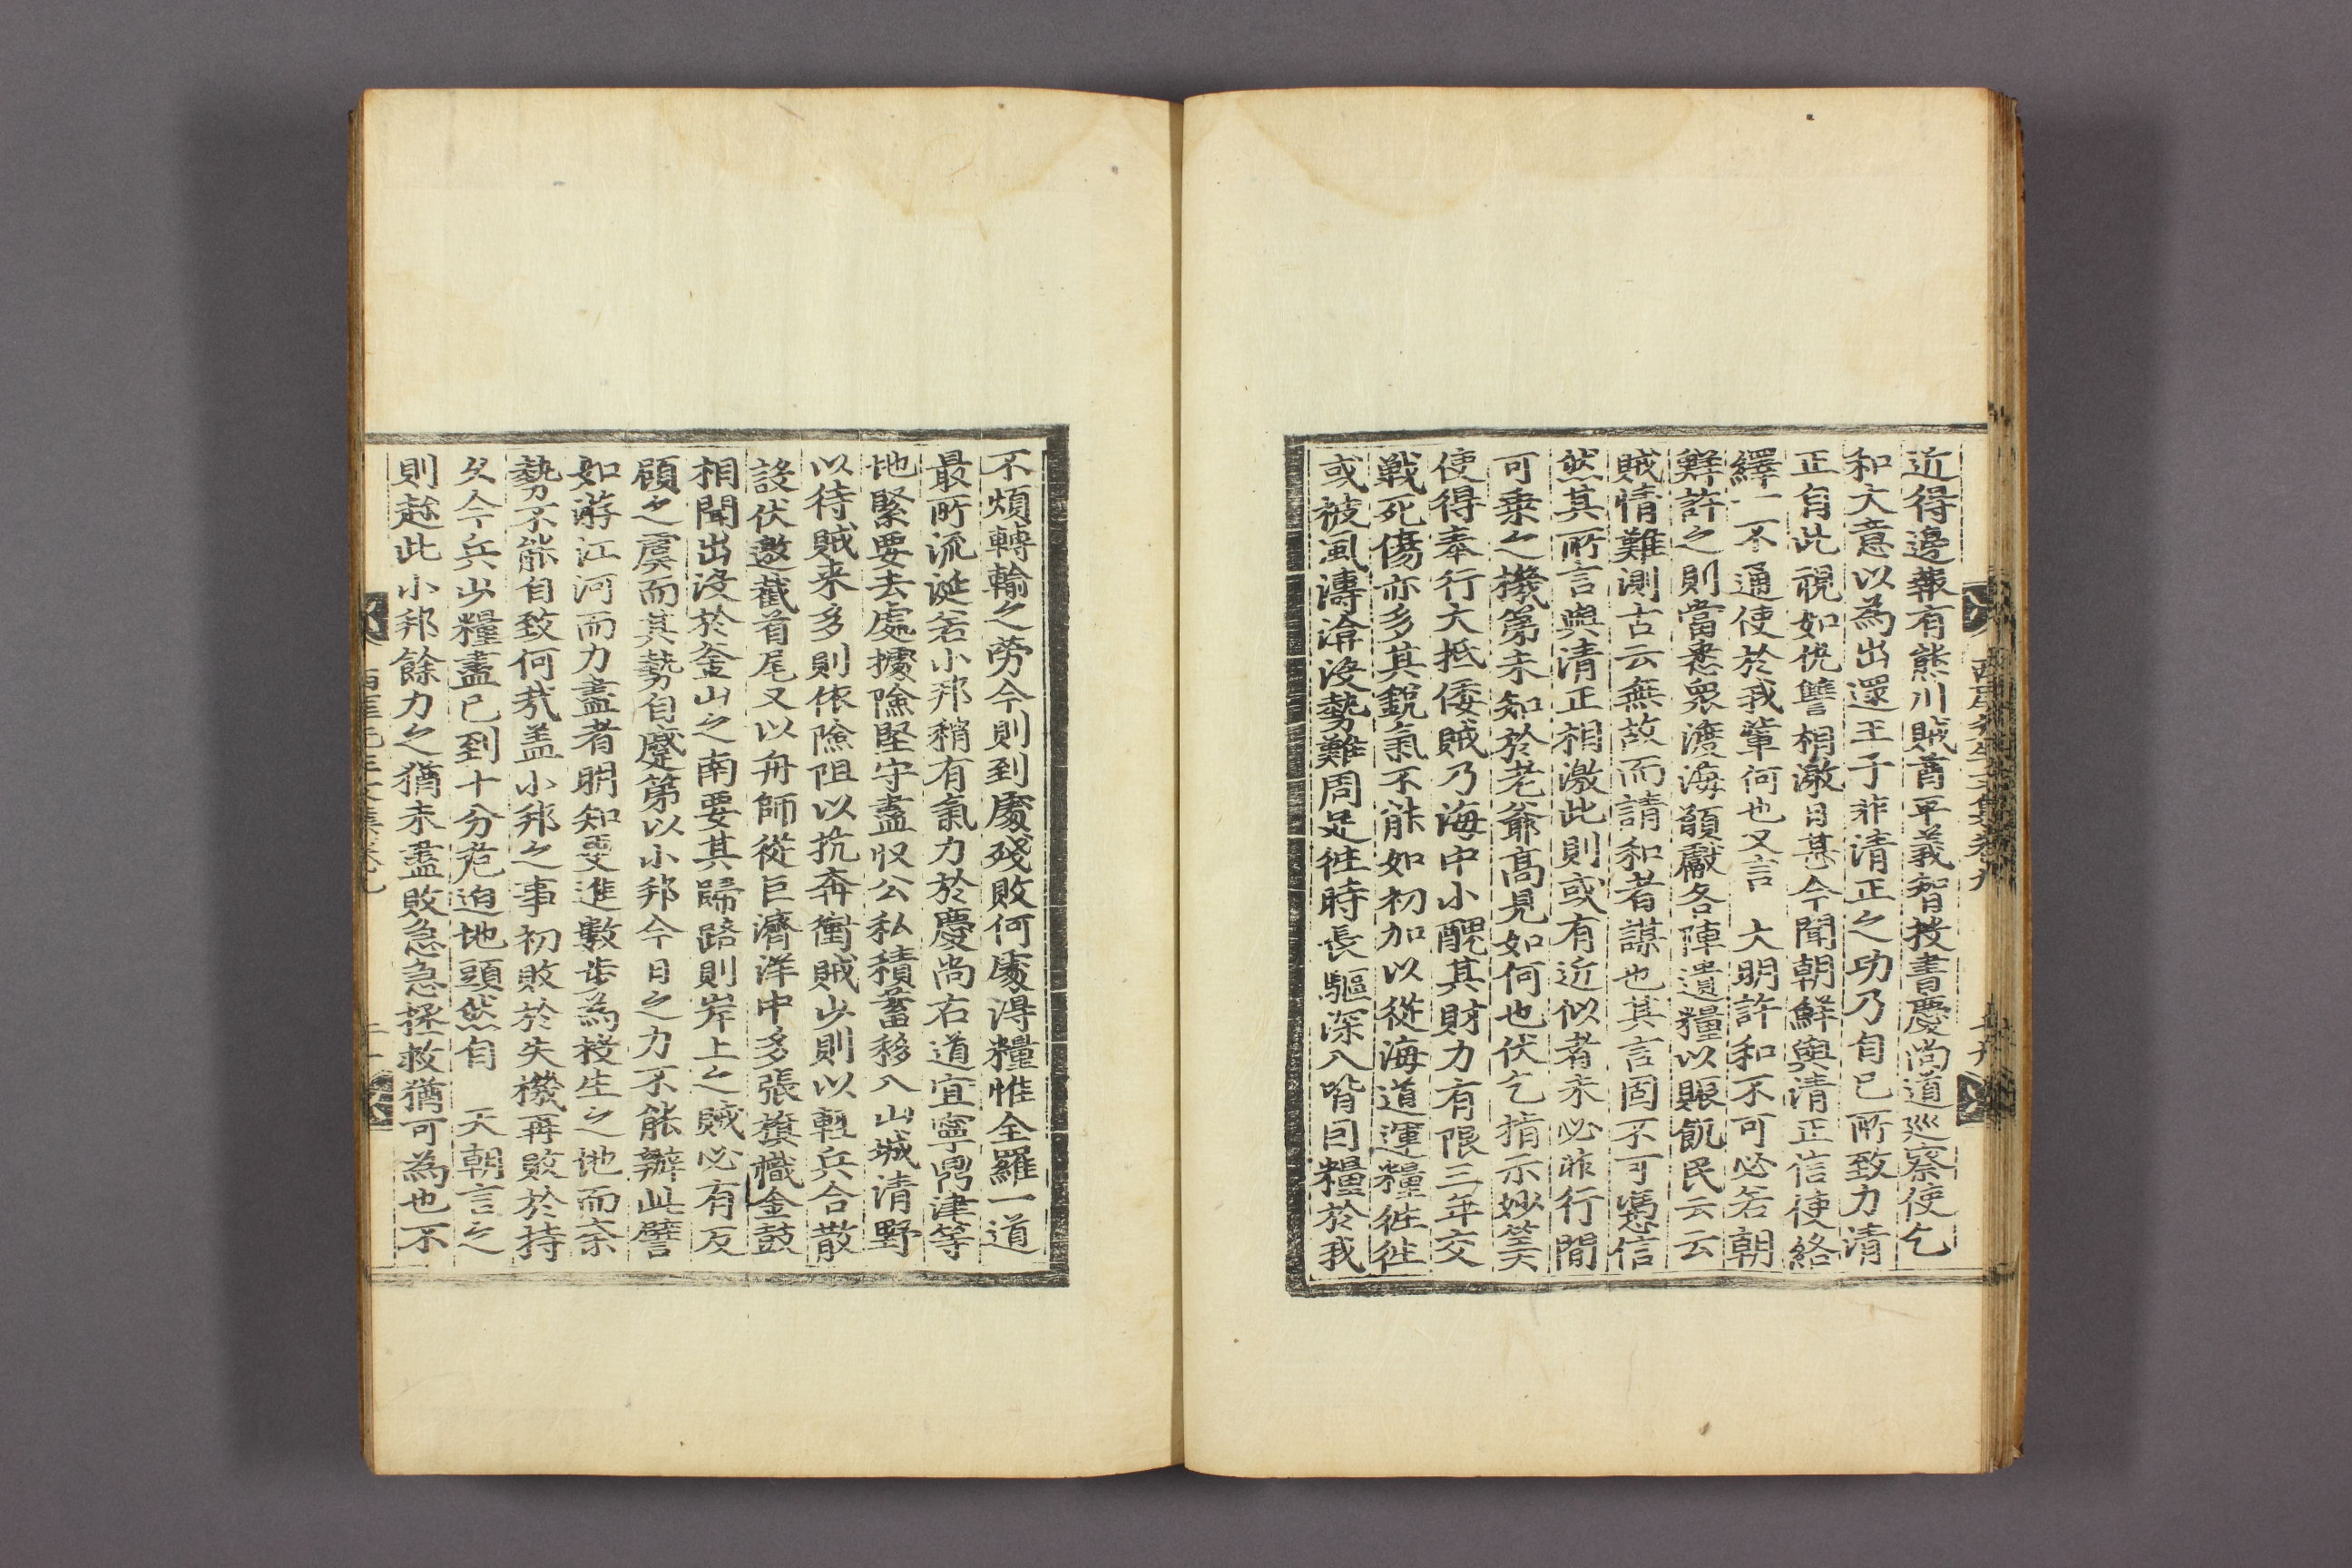 近得邊報有熊川賊酋平義智投書慶尚道巡察使乞
和大意以為出還王子非清正之功乃自己所致力清
正自此視如仇讐相激日甚今聞朝鮮與清正信使絡
繹一不通使於我輩何也又言 大明許和不可必若朝
鮮許之則當悉衆渡海願獻各陣遺糧以賑飢民云云
賊情難測古云無故而請和者謀也其言固不可憑信
然其所言與清正相激此則或有近似者未必非行間
可乗之機第未知於老爺高見如何也伏乞指示妙筭
使得奉行大抵倭賊乃海中小醜其財力有限三年交
戰死傷亦多其銳氣不能如初加以從海道運糧徃徃
或被風濤渰沒勢難周足徃時長驅深入皆因糧於我
不煩轉輸之勞今則到處殘敗何處得糧惟全羅一道
最所流涎若小邦稍有氣力於慶尚右道宜寧鼎津等
地緊要去處據險堅守盡収公私積蓄移入山城清野
以待賊来多則依險阻以抗奔衝賊少則以輕兵合散
設伏邀截首尾又以舟師從巨濟洋中多張旗幟金鼓
相聞出沒於釜山之南要其歸路則岸上之賊必有反
顧之虞而其勢自蹙第以小邦今日之力不能辦此譬
如游江河而力盡者明知更進數步為投生之地而柰
勢不能自致何㢤盖小邦之事初敗於失機再敗於持
久今兵少糧盡已到十分危迫地頭然自 天朝言之
則趂此小邦餘力之猶未盡敗急急拯救猶可為也不